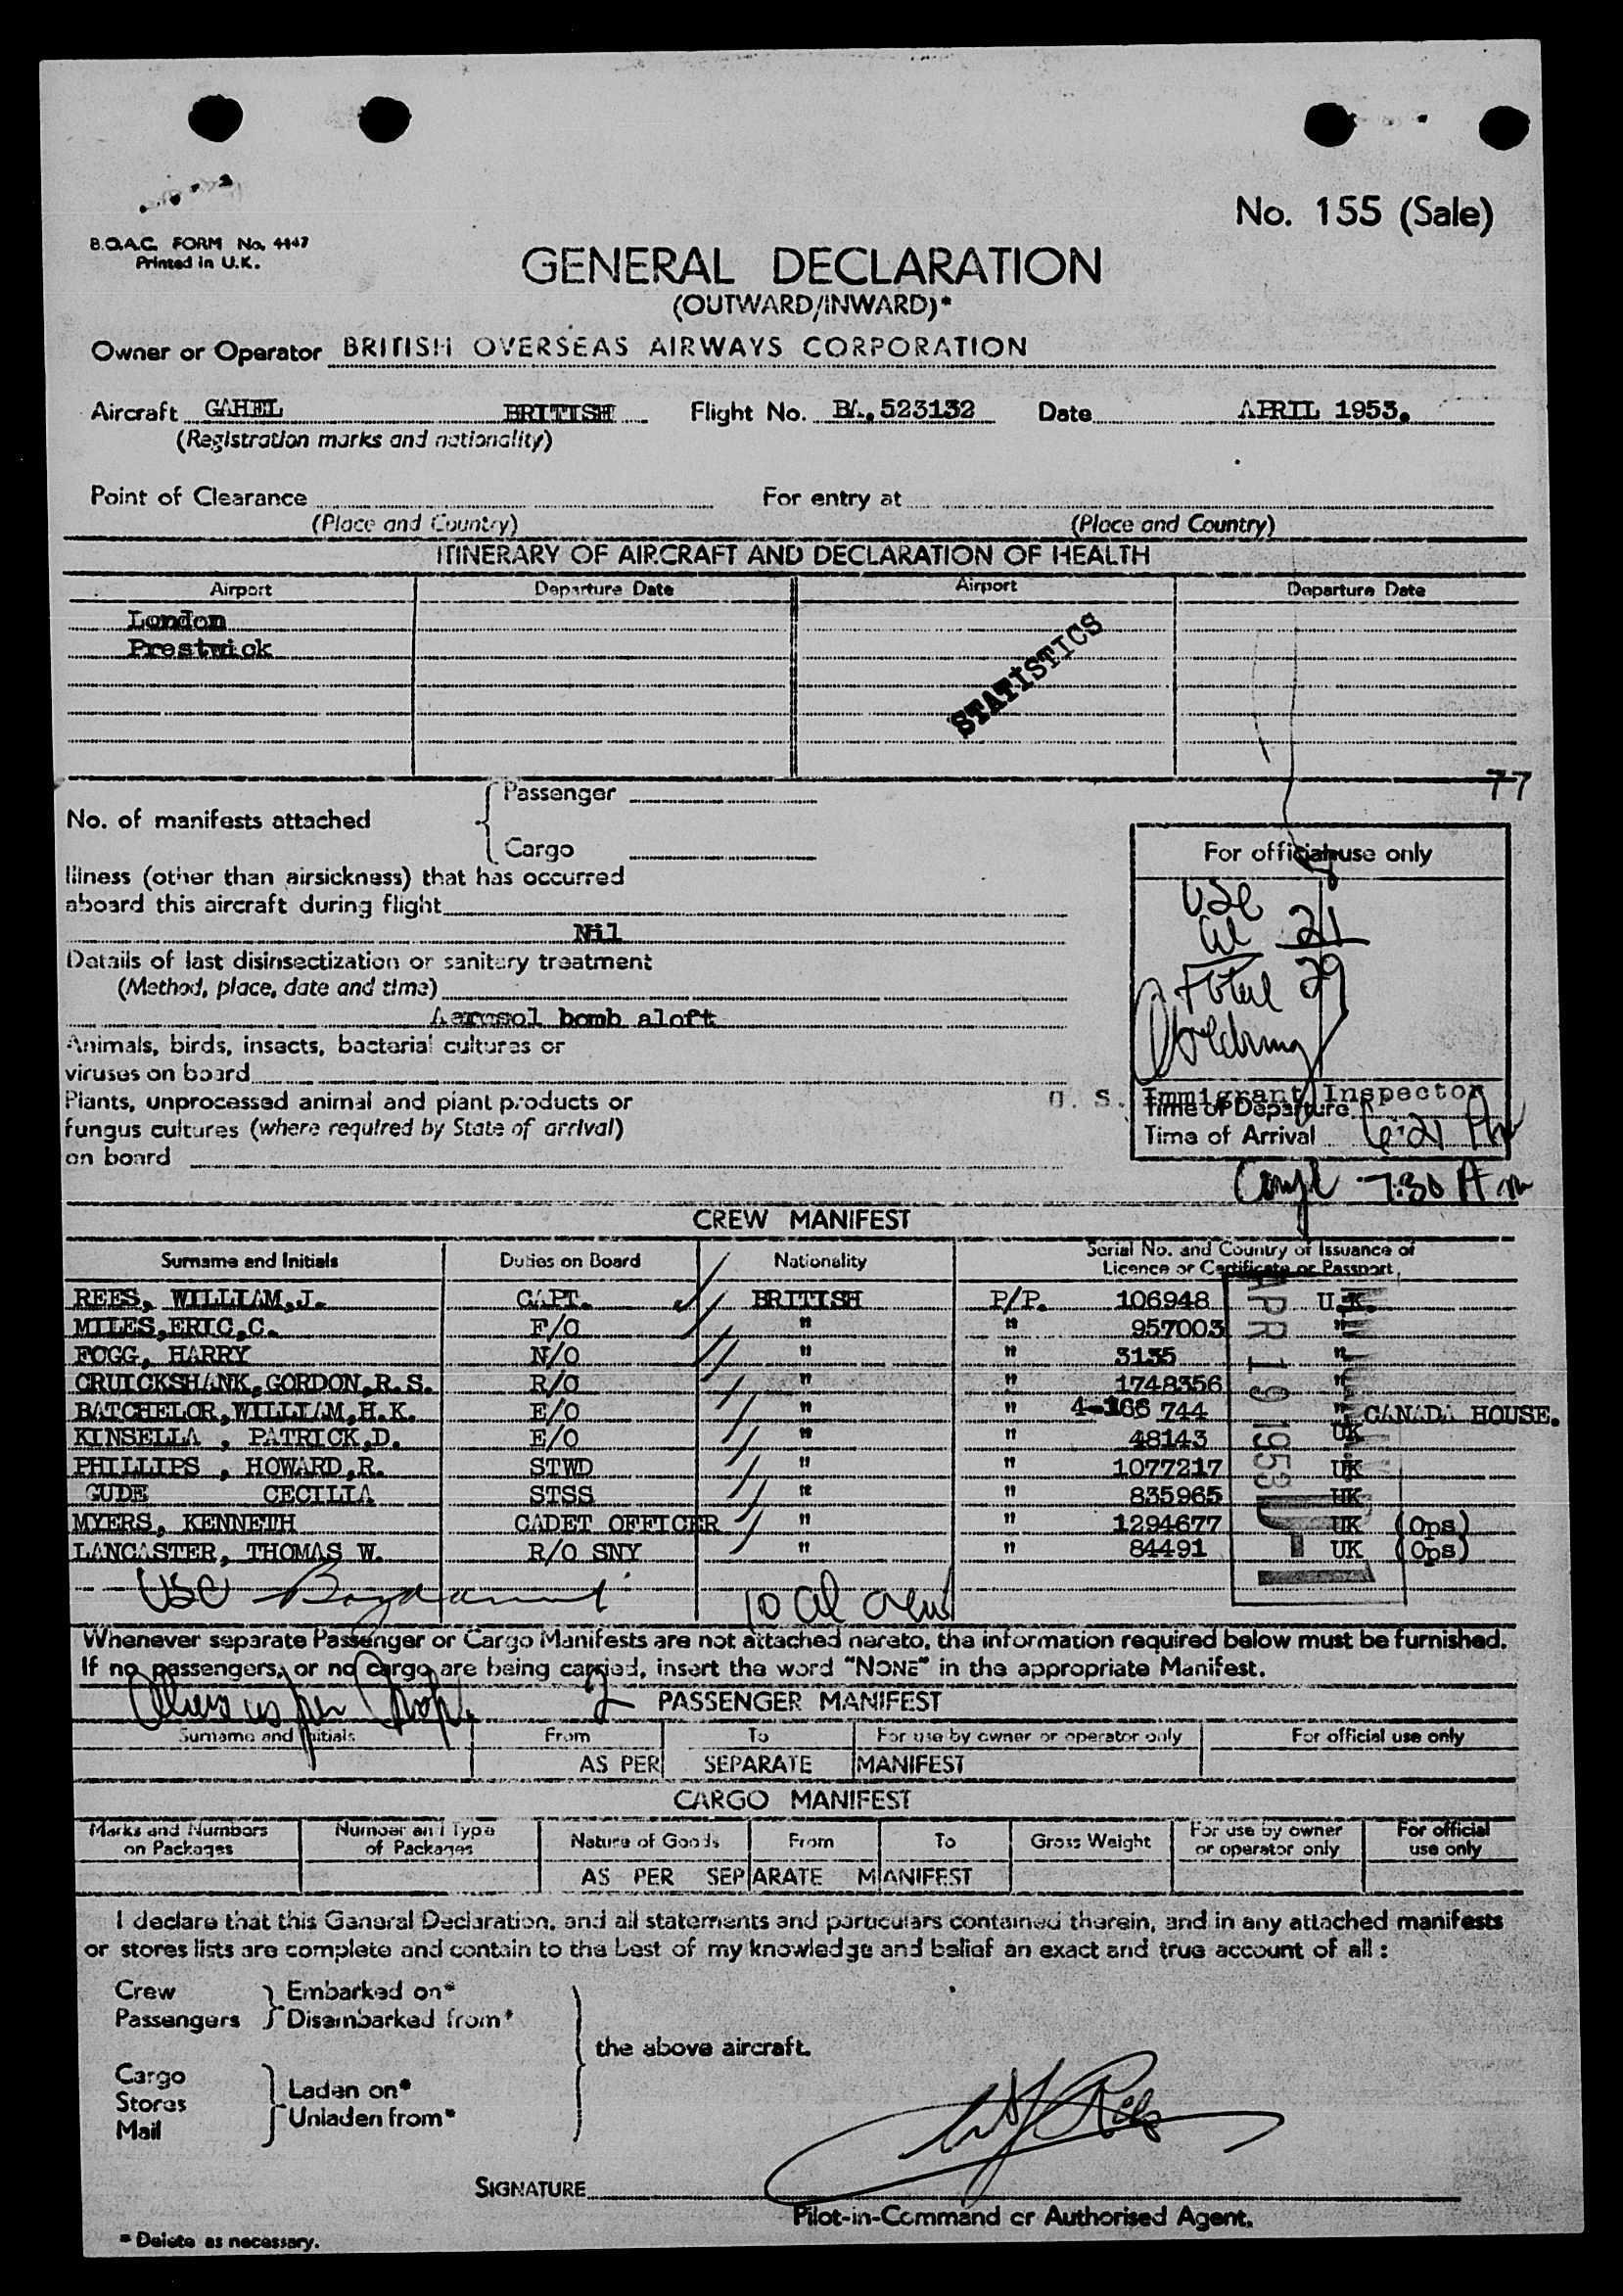 No. 155 (Sale)
B.O.A.C. FORM No. 4447
Printed in U.K.
GENERAL DECLARATION
(OUTWARD/INWARD)*
Owner or Operator BRITISH OVERSEAS AIRWAYS CORPORATION
Aircraft GAHEL BRITISH Flight No. BA. 523132 Date APRIL 1953.
(Registration marks and nationality)
Point of Clearance For entry at
(Place and Country) (Place and Country)
ITINERARY OF AIRCRAFT AND DECLARATION OF HEALTH
Airport Departure Date Airport Departure Date
London
Prestwick
STATISTICS
77
No. of manifests attached { Passenger
Cargo
Illness (other than airsickness) that has occurred
aboard this aircraft during flight
Nil
Details of last disinsectization or sanitary treatment
(Method, place, date and time)
Aerosol bomb aloft
Animals, birds, insects, bacterial cultures or
viruses on board
Plants, unprocessed animal and plant products or
fungus cultures (where required by State of arrival)
on board
For official use only
USC
al 21
Total 29
U. S. Immigrant Inspector
Time of Departure
Time of Arrival 6:21 AM
Compl 7:30 AM
CREW MANIFEST
Surname and Initials Duties on Board Nationality Serial No. and Country of Issuance of
Licence or Certificate or Passport
REES, WILLIAM,J. CAPT. BRITISH P/P. 106948 U.K.
MILES,ERIC,C. F/O " " 957003 "
FOGG, HARRY N/O " " 3135 "
CRUICKSHANK,GORDON,R.S. R/O " " 1748356 "
BATCHELOR,WILLIAM,H.K. E/O " " 4-166 744 " CANADA HOUSE.
KINSELLA , PATRICK,D. E/O " " 48143 UK
PHILLIPS , HOWARD,R. STWD " " 1077217 UK
GUDE CECILIA STSS " " 835965 UK
MYERS, KENNETH CADET OFFICER " " 1294677 UK (Ops)
LANCASTER, THOMAS W. R/O SNY " " 84491 UK (Ops)
APR 19 1953
USC 10 al crew
Whenever separate Passenger or Cargo Manifests are not attached hereto, the information required below must be furnished.
If no passengers, or no cargo are being carried, insert the word "NONE" in the appropriate Manifest.
PASSENGER MANIFEST
Surname and Initials From To For use by owner or operator only For official use only
AS PER SEPARATE MANIFEST
CARGO MANIFEST
Marks and Numbers on Packages Number and Type of Packages Nature of Goods From To Gross Weight For use by owner or operator only For official use only
AS PER SEPARATE MANIFEST
I declare that this General Declaration, and all statements and particulars contained therein, and in any attached manifests
or stores lists are complete and contain to the best of my knowledge and belief an exact and true account of all :
Crew } Embarked on*
Passengers } Disembarked from*
the above aircraft.
Cargo
Stores } Laden on*
Mail } Unladen from*
W J Rees
SIGNATURE
Pilot-in-Command or Authorised Agent.
* Delete as necessary.